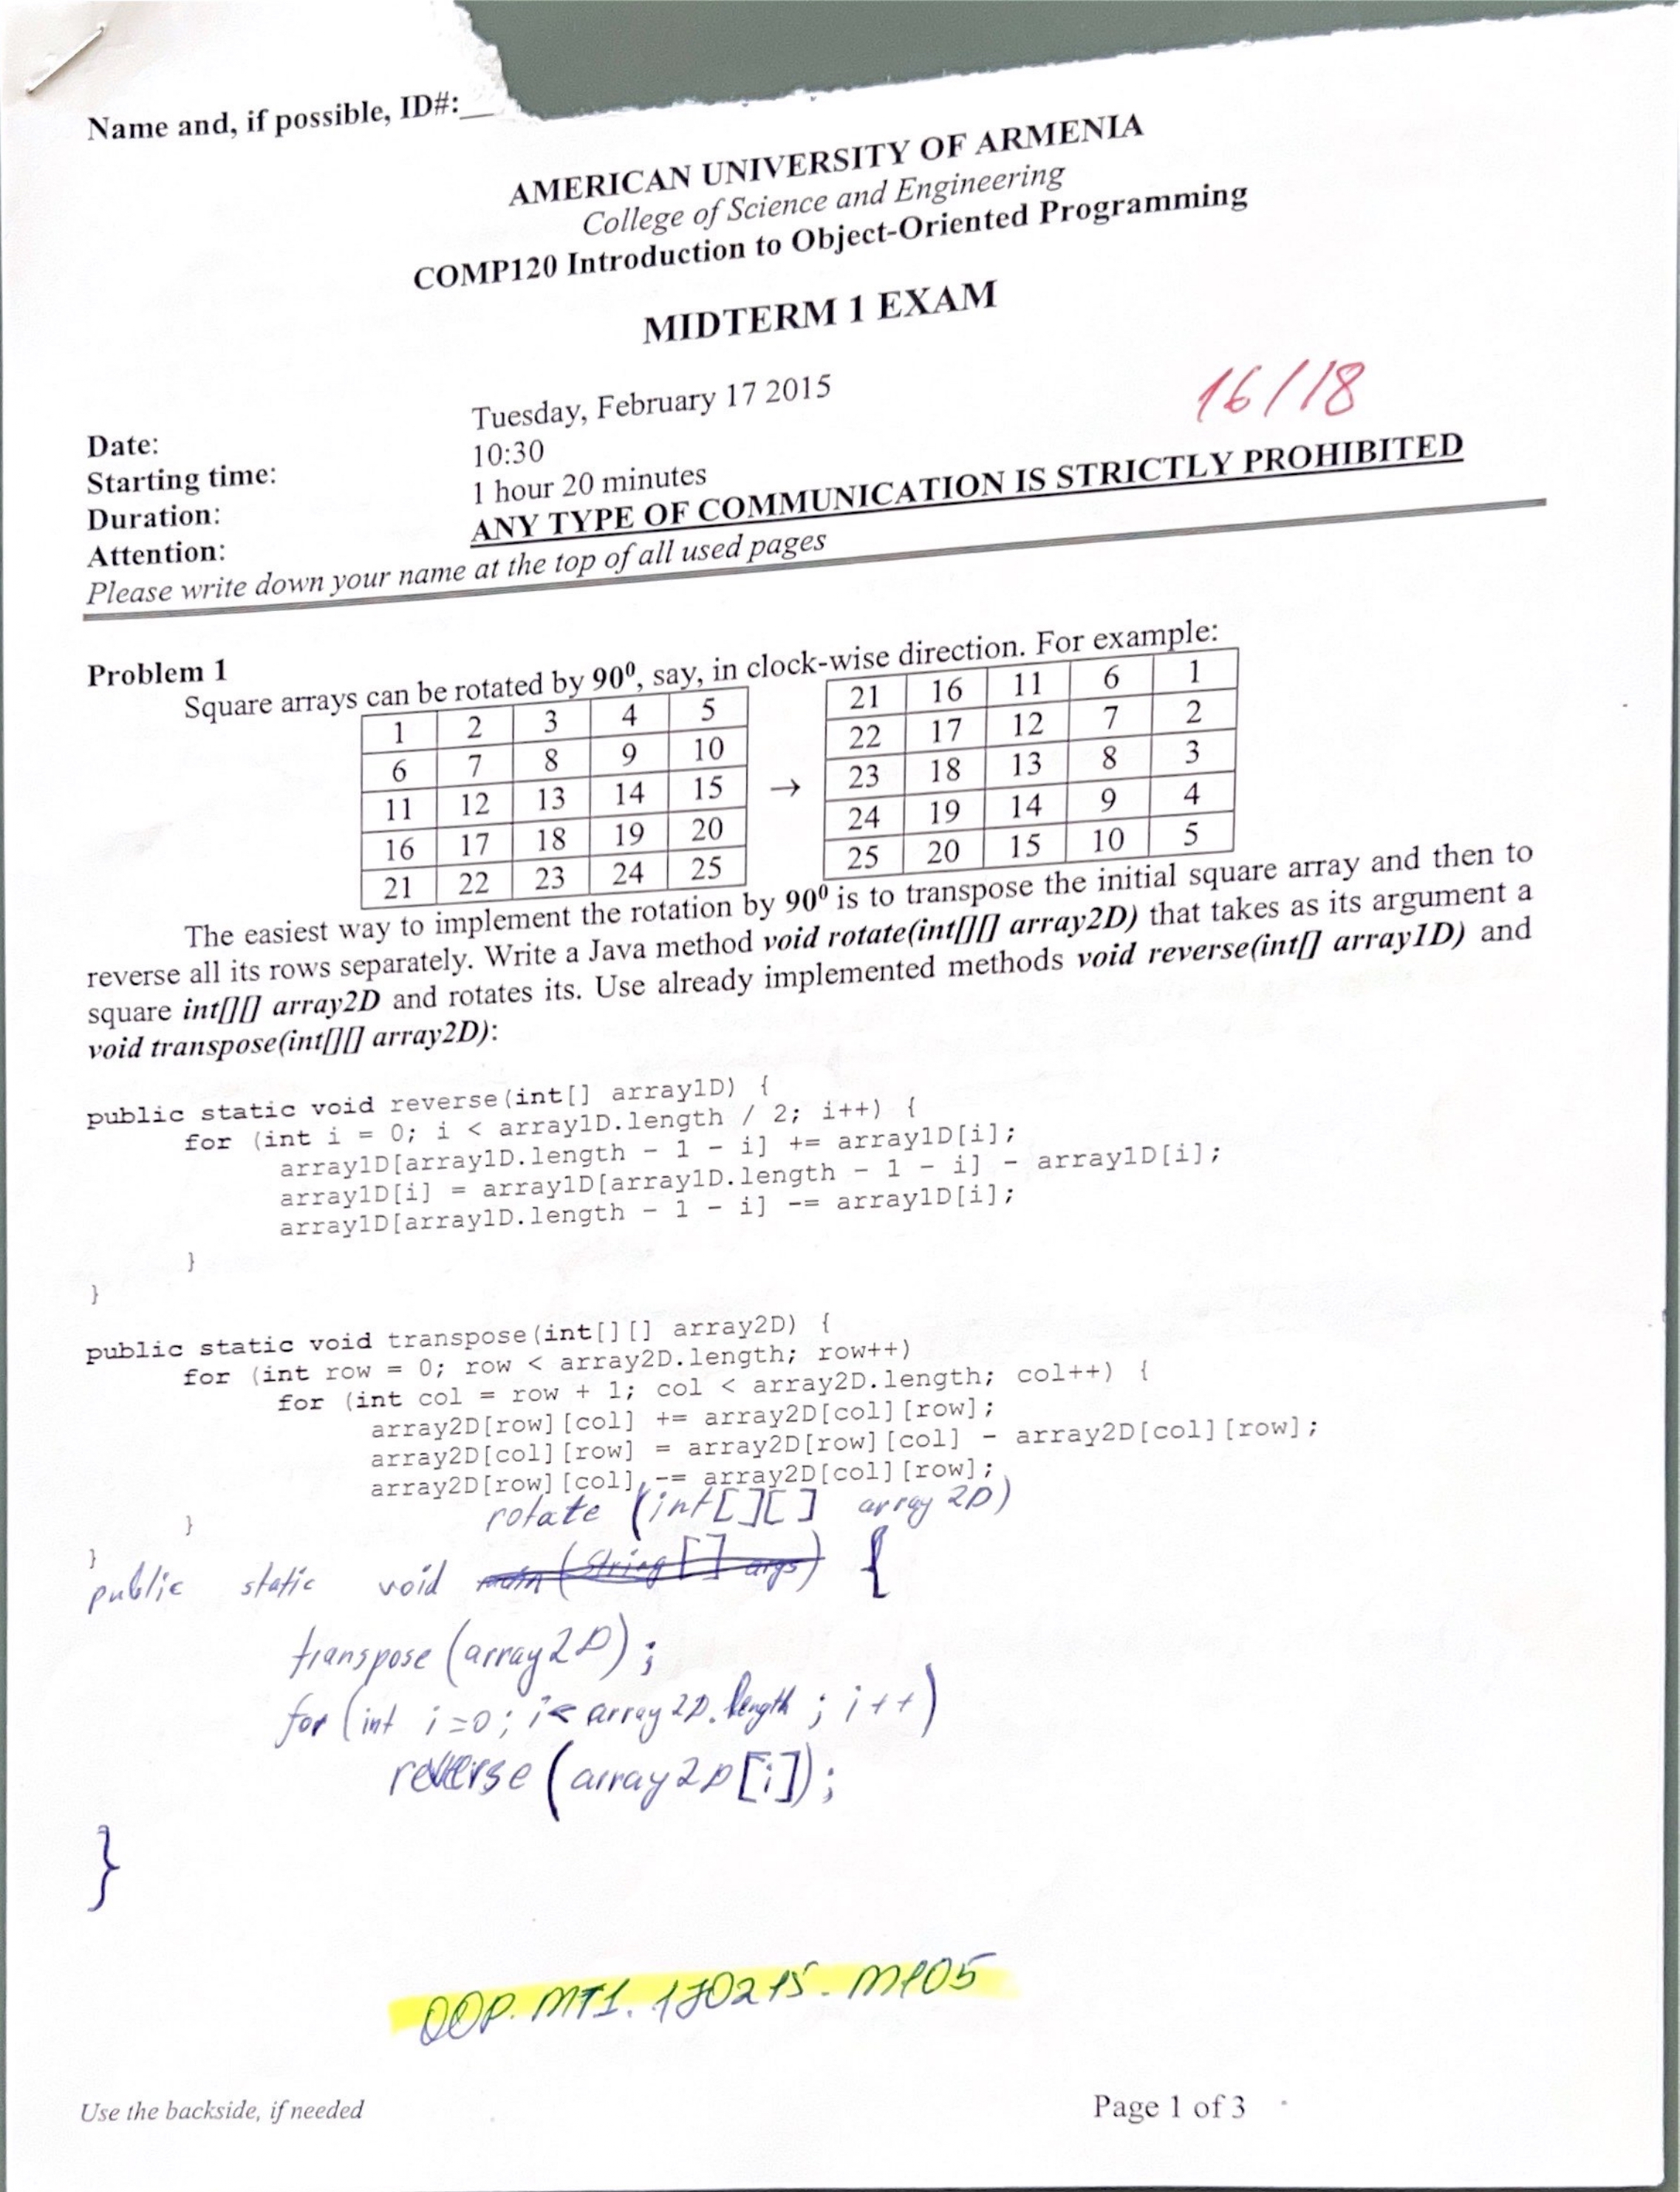 Name and, if possible, ID#:
AMERICAN UNIVERSITY OF ARMENIA
College of Science and Engineering
COMP120 Introduction to Object-Oriented Programming
MIDTERM 1 EXAM
16/18
Date: Tuesday, February 17 2015
Starting time: 10:30
Duration: 1 hour 20 minutes
Attention: ANY TYPE OF COMMUNICATION IS STRICTLY PROHIBITED
Please write down your name at the top of all used pages
Problem 1
Square arrays can be rotated by 90⁰, say, in clock-wise direction. For example:
1 2 3 4 5 21 16 11 6 1
6 7 8 9 10 22 17 12 7 2
11 12 13 14 15 → 23 18 13 8 3
16 17 18 19 20 24 19 14 9 4
21 22 23 24 25 25 20 15 10 5
The easiest way to implement the rotation by 90⁰ is to transpose the initial square array and then to
reverse all its rows separately. Write a Java method void rotate(int[][] array2D) that takes as its argument a
square int[][] array2D and rotates its. Use already implemented methods void reverse(int[] array1D) and
void transpose(int[][] array2D):
public static void reverse(int[] array1D) {
for (int i = 0; i < array1D.length / 2; i++) {
array1D[array1D.length - 1 - i] += array1D[i];
array1D[i] = array1D[array1D.length - 1 - i] - array1D[i];
array1D[array1D.length - 1 - i] -= array1D[i];
}
}
public static void transpose(int[][] array2D) {
for (int row = 0; row < array2D.length; row++)
for (int col = row + 1; col < array2D.length; col++) {
array2D[row][col] += array2D[col][row];
array2D[col][row] = array2D[row][col] - array2D[col][row];
array2D[row][col] -= array2D[col][row];
}
}
rotate (int[][] array 2D)
public static void main (String[] args) {
transpose (array2D);
for (int i=0; i< array2D.length; i++)
reverse (array2D[i]);
}
OOP. MT1. 170215. MP05
Use the backside, if needed
Page 1 of 3